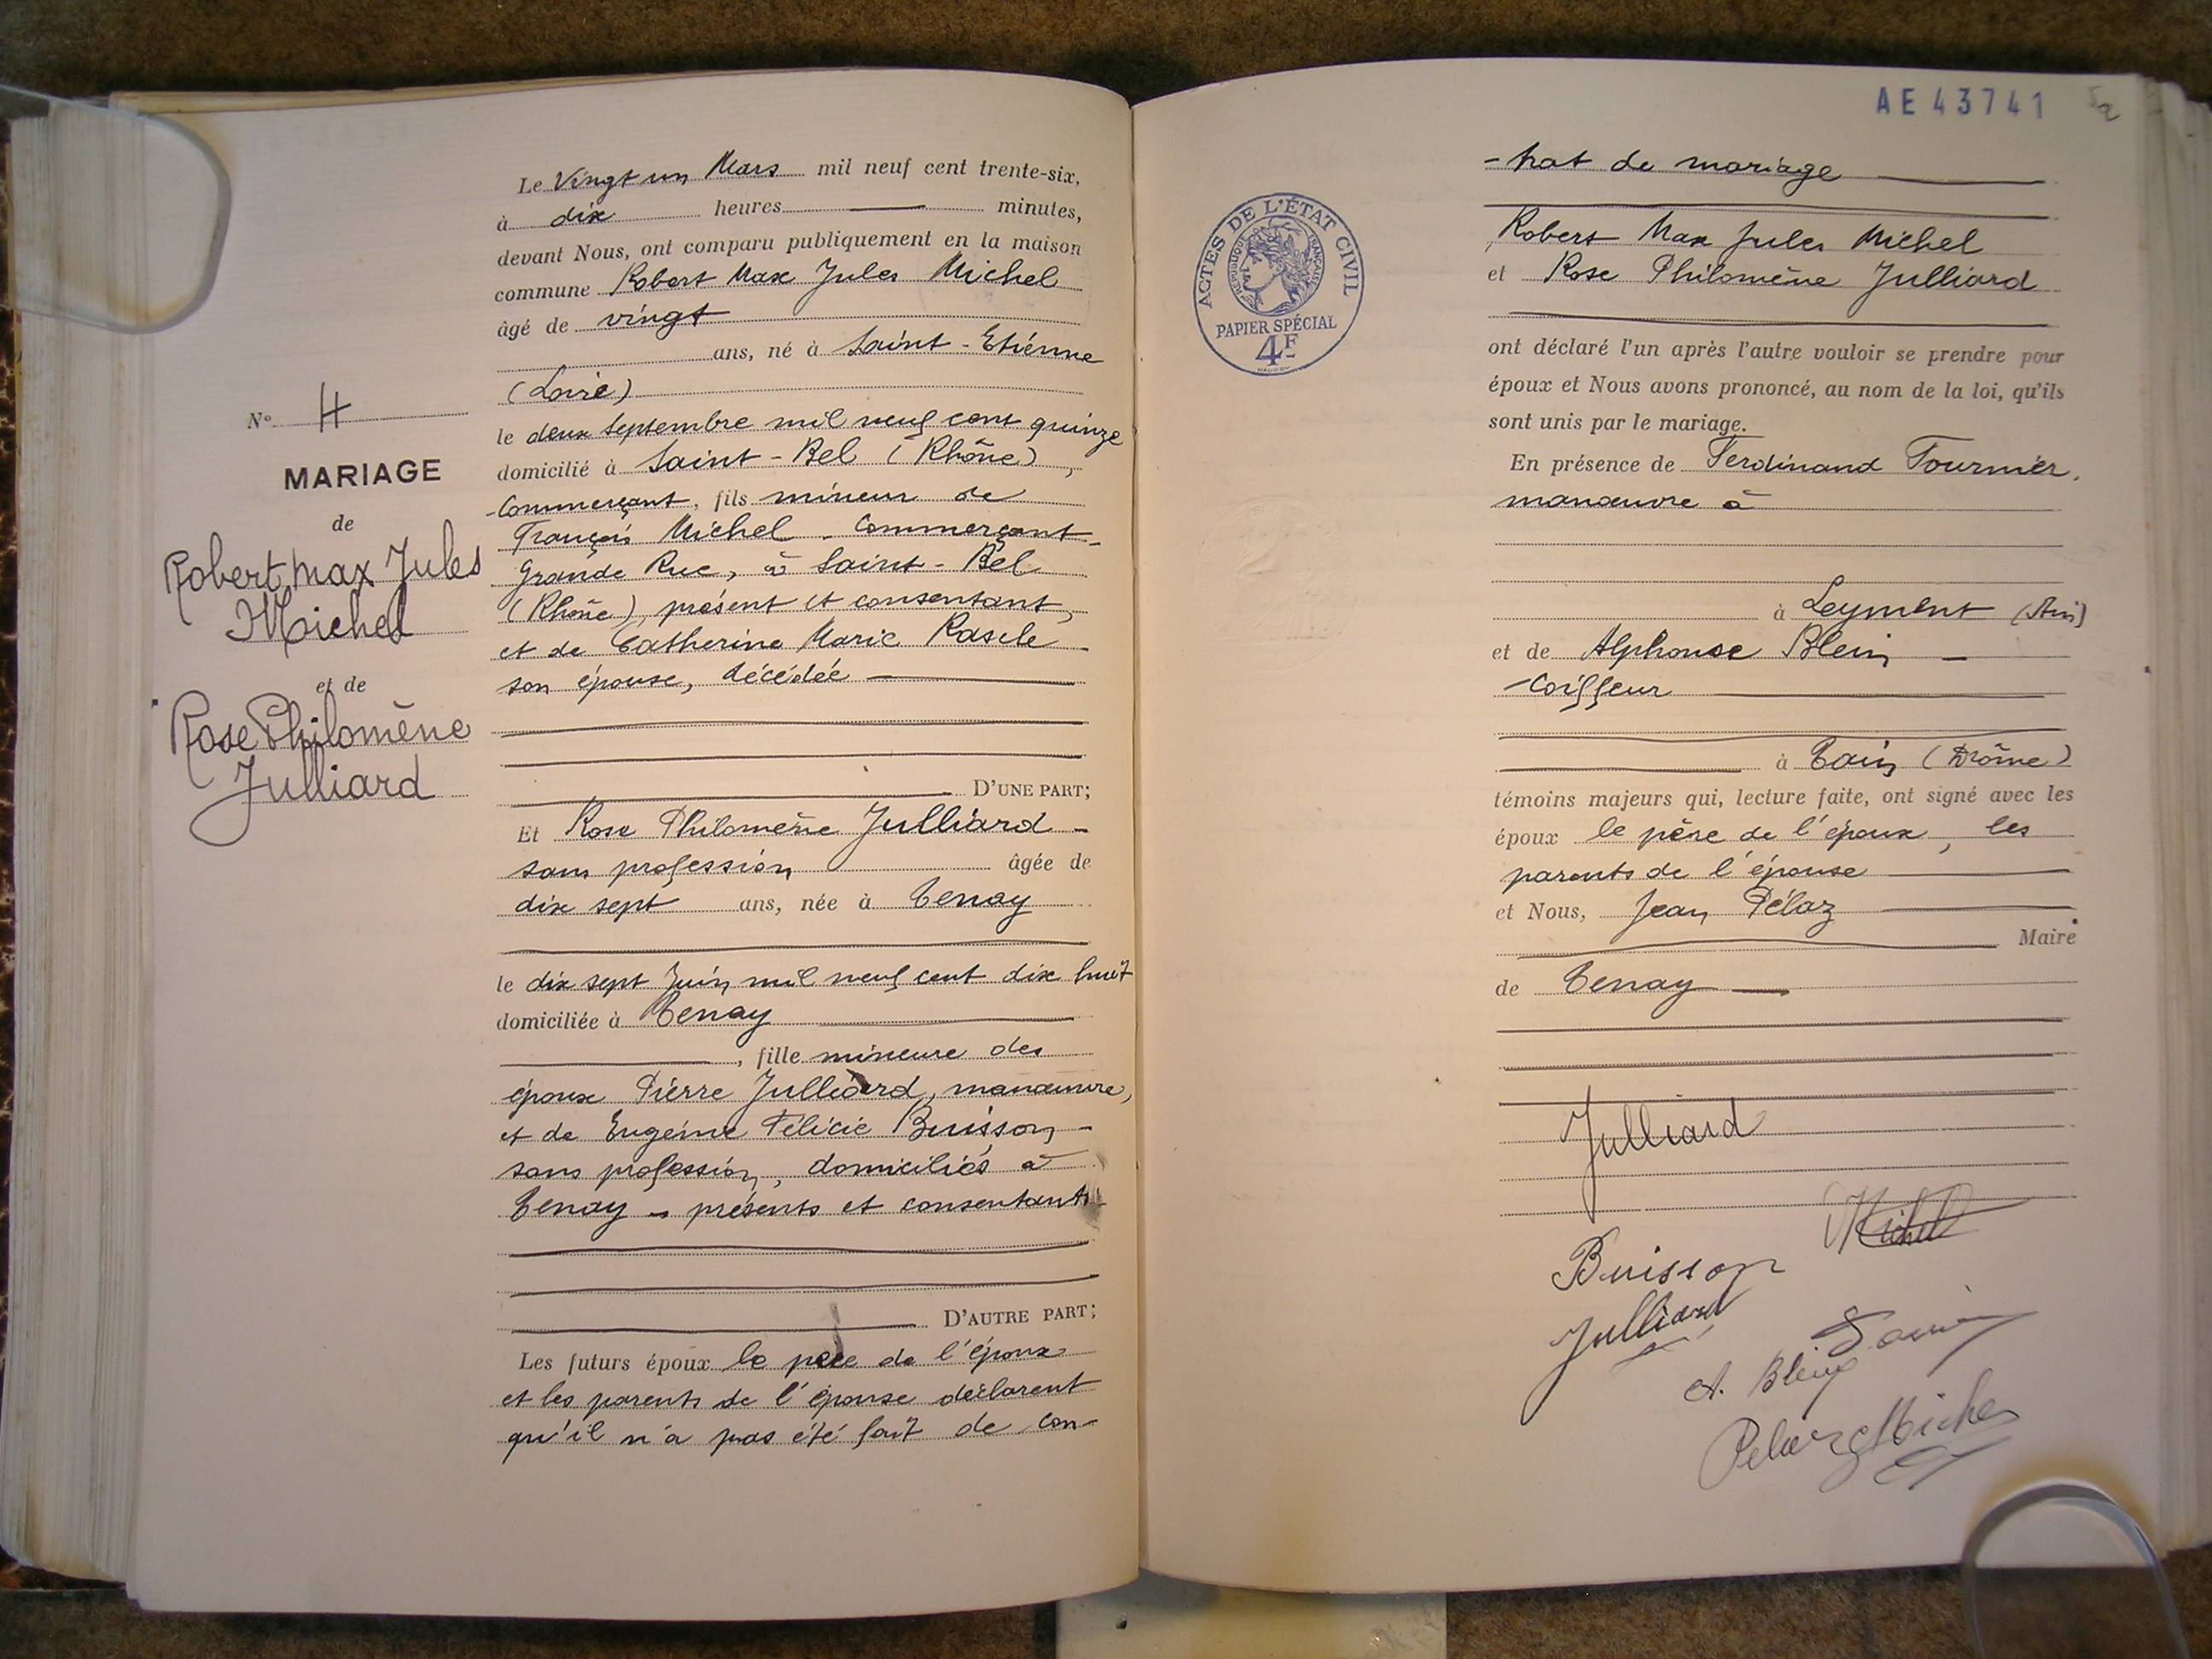 N° 4
MARIAGE
de
Robert Max Jules
Michel
et de
Rose Philomène
Julliard
Le Vingt un Mars mil neuf cent trente-six,
à dix heures minutes,
devant Nous, ont comparu publiquement en la maison
commune Robert Max Jules Michel
âgé de vingt
ans, né à Saint-Etienne
(Loire)
le deux septembre mil neuf cent quinze
domicilié à Saint-Bel (Rhône),
commerçant, fils mineur de
François Michel - commerçant -
Grande Rue, à Saint-Bel
(Rhône), présent et consentant,
et de Catherine Marie Rascle
son épouse, décédée
D'UNE PART;
Et Rose Philomène Julliard -
sans profession âgée de
dix sept ans, née à Tenay
le dix sept Juin mil neuf cent dix huit
domiciliée à Tenay
, fille mineure des
époux Pierre Julliard, manœuvre,
et de Eugénie Félicie Buisson -
sans profession, domiciliés à
Tenay - présents et consentants
D'AUTRE PART;
Les futurs époux le père de l'époux
et les parents de l'épouse déclarent
qu'il n'a pas été fait de con-
AE 43741
52
ACTES DE L'ÉTAT CIVIL
RÉPUBLIQUE FRANÇAISE
PAPIER SPÉCIAL
4F
-trat de mariage
Robert Max Jules Michel
et Rose Philomène Julliard
ont déclaré l'un après l'autre vouloir se prendre pour
époux et Nous avons prononcé, au nom de la loi, qu'ils
sont unis par le mariage.
En présence de Ferdinand Fournier,
manœuvre à
à Leyment (Ain)
et de Alphonse Blein -
-coiffeur
à Tain (Drôme)
témoins majeurs qui, lecture faite, ont signé avec les
époux le père de l'époux, les
parents de l'épouse
et Nous, Jean Pélaz
Maire
de Tenay
Julliard
Michel
Buisson
Julliard
A. Blein
Pelaz
Michel